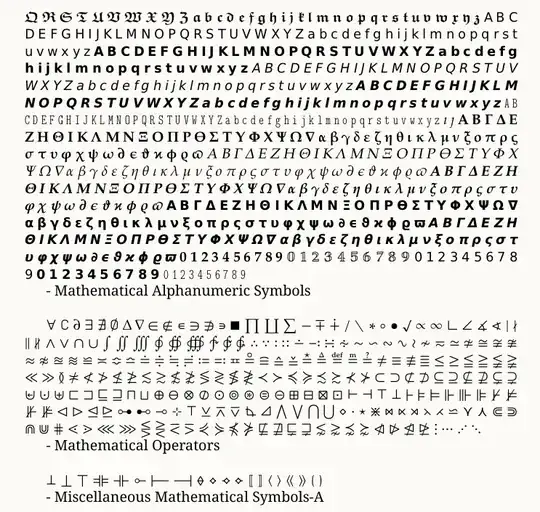 𝕼𝕽𝕾𝕿𝖀𝖁𝖂𝖃𝖄𝖅𝖆𝖇𝖈𝖉𝖊𝖋𝖌𝖍𝖎𝖏𝖐𝖑𝖒𝖓𝖔𝖕𝖖𝖗𝖘𝖙𝖚𝖛𝖜𝖝𝖞𝖟𝖠𝖡𝖢
𝖣𝖤𝖥𝖦𝖧𝖨𝖩𝖪𝖫𝖬𝖭𝖮𝖯𝖰𝖱𝖲𝖳𝖴𝖵𝖶𝖷𝖸𝖹𝖺𝖻𝖼𝖽𝖾𝖿𝗀𝗁𝗂𝗃𝗄𝗅𝗆𝗇𝗈𝗉𝗊𝗋𝗌𝗍
𝗎𝗏𝗐𝗑𝗒𝗓𝗔𝗕𝗖𝗗𝗘𝗙𝗚𝗛𝗜𝗝𝗞𝗟𝗠𝗡𝗢𝗣𝗤𝗥𝗦𝗧𝗨𝗩𝗪𝗫𝗬𝗭𝗮𝗯𝗰𝗱𝗲𝗳𝗴
𝗵𝗶𝗷𝗸𝗹𝗺𝗻𝗼𝗽𝗾𝗿𝘀𝘁𝘂𝘃𝘄𝘅𝘆𝘇𝘈𝘉𝘊𝘋𝘌𝘍𝘎𝘏𝘐𝘑𝘒𝘓𝘔𝘕𝘖𝘗𝘘𝘙𝘚𝘛𝘜𝘝
𝘞𝘟𝘠𝘡𝘢𝘣𝘤𝘥𝘦𝘧𝘨𝘩𝘪𝘫𝘬𝘭𝘮𝘯𝘰𝘱𝘲𝘳𝘴𝘵𝘶𝘷𝘸𝘹𝘺𝘻𝘼𝘽𝘾𝘿𝙀𝙁𝙂𝙃𝙄𝙅𝙆𝙇𝙈
𝙉𝙊𝙋𝙌𝙍𝙎𝙏𝙐𝙑𝙒𝙓𝙔𝙕𝙖𝙗𝙘𝙙𝙚𝙛𝙜𝙝𝙞𝙟𝙠𝙡𝙢𝙣𝙤𝙥𝙦𝙧𝙨𝙩𝙪𝙫𝙬𝙭𝙮𝙯𝙰𝙱
𝙲𝙳𝙴𝙵𝙶𝙷𝙸𝙹𝙺𝙻𝙼𝙽𝙾𝙿𝚀𝚁𝚂𝚃𝚄𝚅𝚆𝚇𝚈𝚉𝚊𝚋𝚌𝚍𝚎𝚏𝚐𝚑𝚒𝚓𝚔𝚕𝚖𝚗𝚘𝚙𝚚𝚛𝚜𝚝𝚞𝚟𝚠𝚡𝚢𝚣𝚤𝚥𝚨𝚩𝚪𝚫𝚬
𝚭𝚮𝚯𝚰𝚱𝚲𝚳𝚴𝚵𝚶𝚷𝚸𝚹𝚺𝚻𝚼𝚽𝚾𝚿𝛀𝛁𝛂𝛃𝛄𝛅𝛆𝛇𝛈𝛉𝛊𝛋𝛌𝛍𝛎𝛏𝛐𝛑𝛒𝛓
𝛔𝛕𝛖𝛗𝛘𝛙𝛚𝛛𝛜𝛝𝛞𝛟𝛠𝛡𝛢𝛣𝛤𝛥𝛦𝛧𝛨𝛩𝛪𝛫𝛬𝛭𝛮𝛯𝛰𝛱𝛲𝛳𝛴𝛵𝛶𝛷𝛸
𝛹𝛺𝛻𝛼𝛽𝛾𝛿𝜀𝜁𝜂𝜃𝜄𝜅𝜆𝜇𝜈𝜉𝜊𝜋𝜌𝜍𝜎𝜏𝜐𝜑𝜒𝜓𝜔𝜕𝜖𝜗𝜘𝜙𝜚𝜛𝜜𝜝𝜞𝜟𝜠𝜡𝜢
𝜣𝜤𝜥𝜦𝜧𝜨𝜩𝜪𝜫𝜬𝜭𝜮𝜯𝜰𝜱𝜲𝜳𝜴𝜵𝜶𝜷𝜸𝜹𝜺𝜻𝜼𝜽𝜾𝜿𝝀𝝁𝝂𝝃𝝄𝝅𝝆𝝇𝝈𝝉𝝊
𝝋𝝌𝝍𝝎𝝏𝝐𝝑𝝒𝝓𝝔𝝕𝝖𝝗𝝘𝝙𝝚𝝛𝝜𝝝𝝞𝝟𝝠𝝡𝝢𝝣𝝤𝝥𝝦𝝧𝝨𝝩𝝪𝝫𝝬𝝭𝝮𝝯
𝝰𝝱𝝲𝝳𝝴𝝵𝝶𝝷𝝸𝝹𝝺𝝻𝝼𝝽𝝾𝝿𝞀𝞁𝞂𝞃𝞄𝞅𝞆𝞇𝞈𝞉𝞊𝞋𝞌𝞍𝞎𝞏𝞐𝞑𝞒𝞓𝞔𝞕𝞖
𝞗𝞘𝞙𝞚𝞛𝞜𝞝𝞞𝞟𝞠𝞡𝞢𝞣𝞤𝞥𝞦𝞧𝞨𝞩𝞪𝞫𝞬𝞭𝞮𝞯𝞰𝞱𝞲𝞳𝞴𝞵𝞶𝞷𝞸𝞹𝞺𝞻𝞼𝞽
𝞾𝞿𝟀𝟁𝟂𝟃𝟄𝟅𝟆𝟇𝟈𝟉𝟎𝟏𝟐𝟑𝟒𝟓𝟔𝟕𝟖𝟗𝟘𝟙𝟚𝟛𝟜𝟝𝟞𝟟𝟠𝟡𝟢𝟣𝟤𝟥𝟦𝟧𝟨𝟩𝟪
𝟫𝟬𝟭𝟮𝟯𝟰𝟱𝟲𝟳𝟴𝟵𝟶𝟷𝟸𝟹𝟺𝟻𝟼𝟽𝟾𝟿
- Mathematical Alphanumeric Symbols
∀∁∂∃∄∅∆∇∈∉∊∋∌∍∎∏∐∑−∓∔∕∖∗∘∙√∝∞∟∠∡∢∣∤
∥∦∧∨∩∪∫∬∭∮∯∰∱∲∳∴∵∶∷∸∹∺∻∼∽∾∿≀≁≂≃≄≅≆≇
≈≉≊≋≌≍≎≏≐≑≒≓≔≕≖≗≘≙≚≛≜≝≞≟≠≡≢≣≤≥≦≧≨≩
≪≫≬≭≮≯≰≱≲≳≴≵≶≷≸≹≺≻≼≽≾≿⊀⊁⊂⊃⊄⊅⊆⊇⊈⊉⊊⊋⊌
⊍⊎⊏⊐⊑⊒⊓⊔⊕⊖⊗⊘⊙⊚⊛⊜⊝⊞⊟⊠⊡⊢⊣⊤⊥⊦⊧⊨⊩⊪⊫⊬⊭
⊮⊯⊲⊳⊴⊵⊶⊷⊸⊹⊺⊻⊼⊽⊾⊿⋀⋁⋂⋃⋄⋅⋆⋇⋈⋉⋊⋋⋌⋍⋎⋏⋐⋑
⋒⋓⋔⋕⋖⋗⋘⋙⋚⋛⋜⋝⋞⋟⋠⋡⋢⋣⋤⋥⋦⋧⋨⋩⋪⋫⋬⋭⋮⋯⋰⋱
- Mathematical Operators
⟂⟘⟙⟚⟛⟜⟝⟞⟠⟡⟢⟣⟦⟧⟨⟩⟪⟫⟮⟯
- Miscellaneous Mathematical Symbols-A